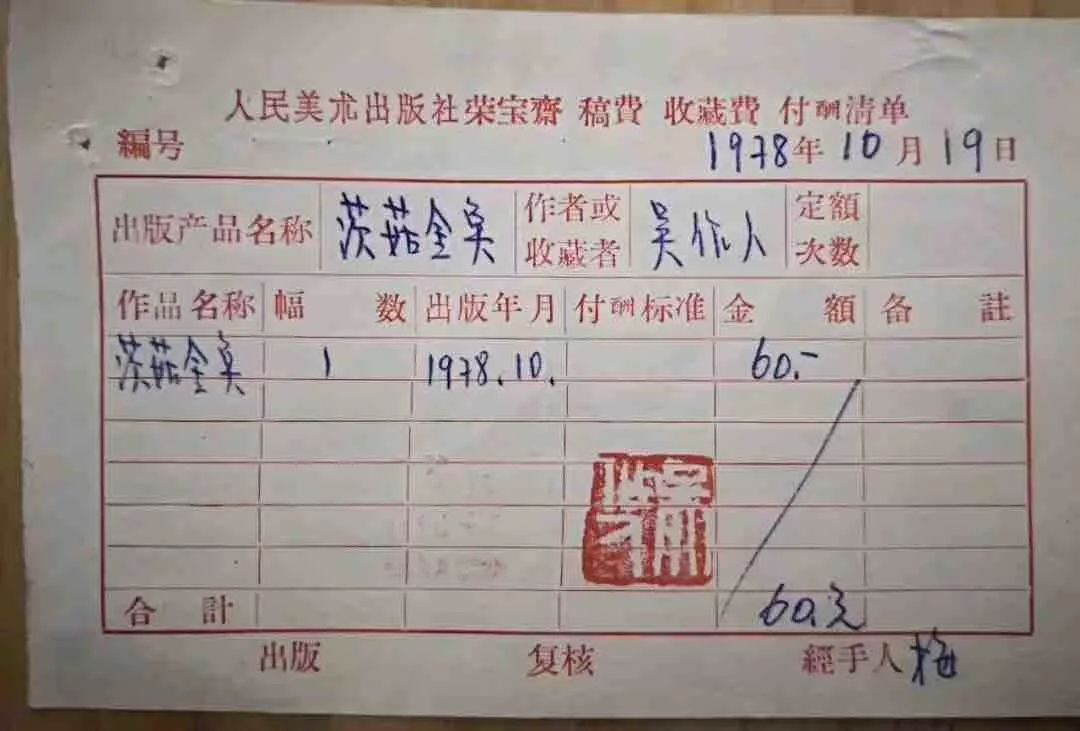 人民美术出版社荣宝齋 稿費 收藏費 付酬清单
編号 1978年10月19日
出版产品名称 茨菇金鱼 作者或收藏者 吴作人 定額次数
作品名称 幅数 出版年月 付酬标准 金額 备註
茨菇金鱼 1 1978.10. 60.-
合計 60.元
出版 复核 經手人 梅